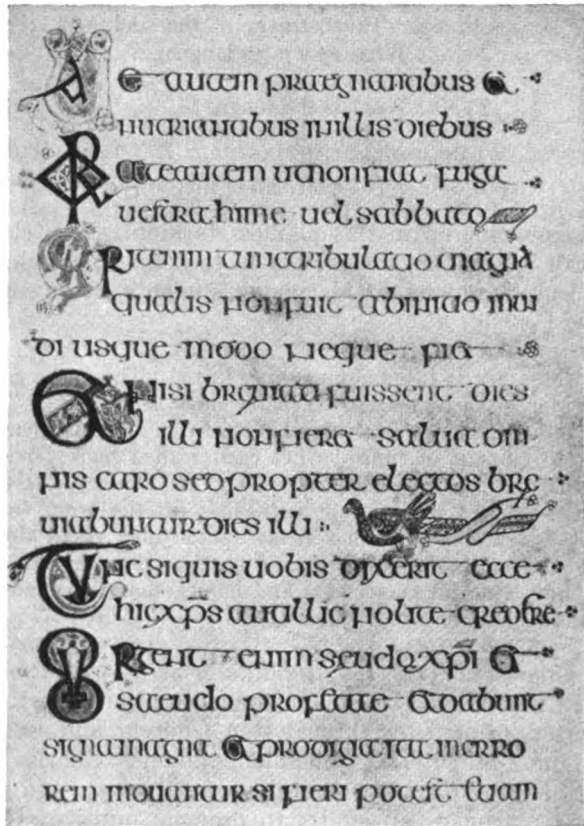 Uae autem praegnantibus et
nutrientibus in illis diebus
Orate autem ut non fiat fuga
uestra hime uel sabbato
Erit enim tunc tribulatio magna
qualis non fuit ab initio mun
di usque modo neque fiet
Et nisi breuiati fuissent dies
illi non fieret salua om
nis caro sed propter electos bre
uiabuntur dies illi
Tunc si quis uobis dixerit ecce
hic xps aut illic nolite credere
Surgent enim seudo xpi et
saeudo profetae et dabunt
signa magna et prodigia ita ut in erro
rem mouantur si fieri potest etiam